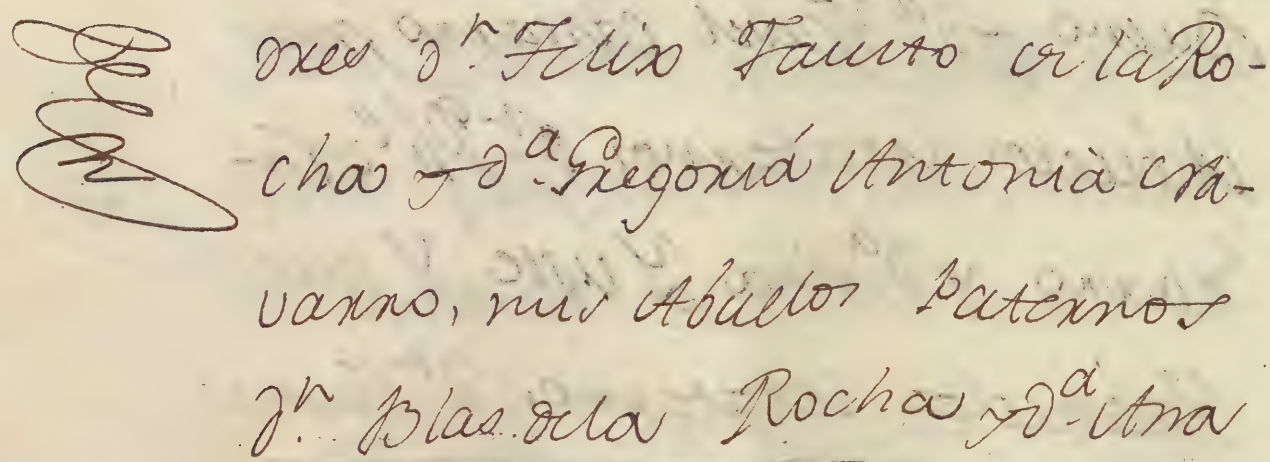 dres dn. Felix Fausto de la Ro-
cha y da. Gregoriá Antonià Na-
varro, mis Abuelos Paternos
dn. Blas de la Rocha y da. Ana